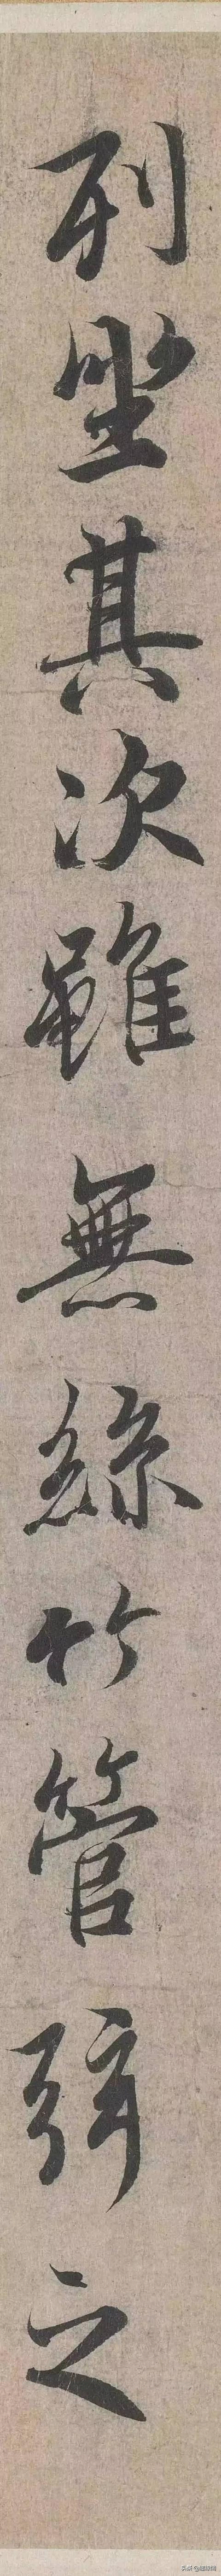 列坐其次雖無絲竹管弦之